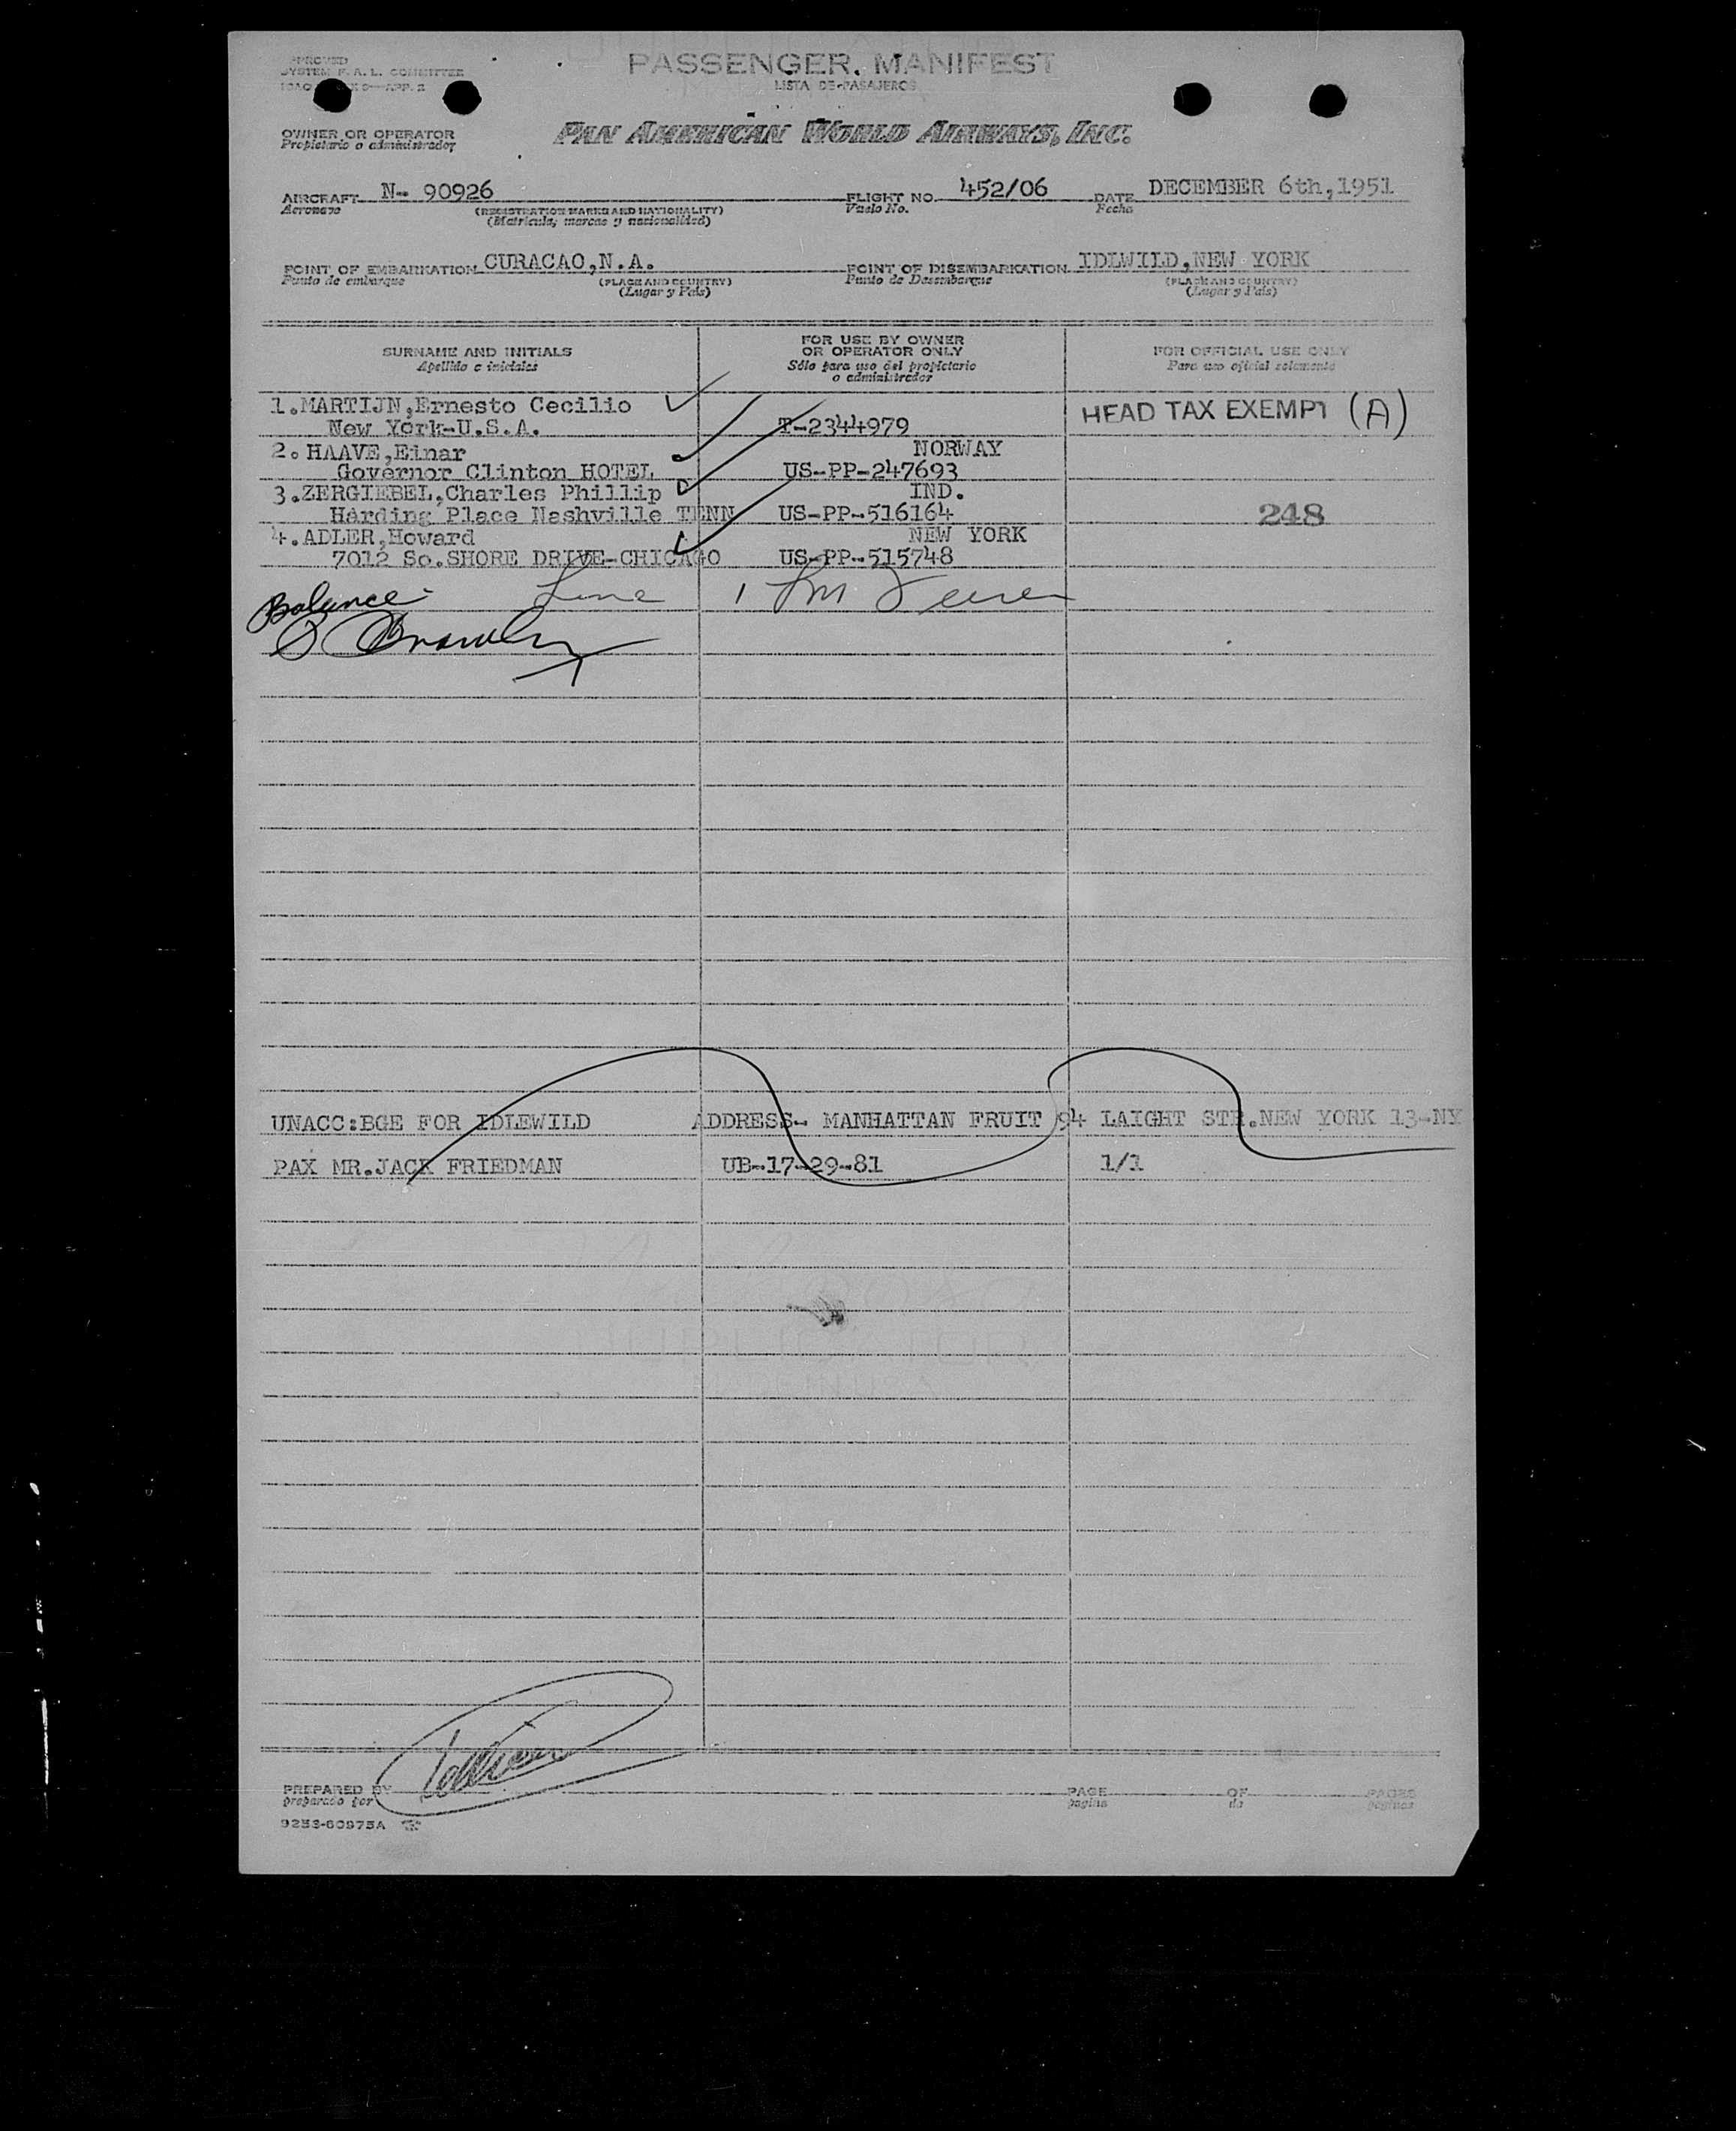 PASSENGER MANIFEST
LISTA DE PASAJEROS
APPROVED
SYSTEM F. A. L. COMMITTEE
OWNER OR OPERATOR
Propietario o administrador
PAN AMERICAN WORLD AIRWAYS, INC.
AIRCRAFT N- 90926 FLIGHT NO. 452/06 DATE DECEMBER 6th,1951
Aeronave (REGISTRATION MARKS AND NATIONALITY) Vuelo No. Fecha
(Matricula, marcas y nacionalidad)
POINT OF EMBARKATION CURACAO,N.A. POINT OF DISEMBARKATION IDLWILD,NEW YORK
Punto de embarque (PLACE AND COUNTRY) Punto de Desembarque (PLACE AND COUNTRY)
(Lugar y País) (Lugar y País)
SURNAME AND INITIALS FOR USE BY OWNER OR OPERATOR ONLY FOR OFFICIAL USE ONLY
Apellido e iniciales Sólo para uso del propietario o administrador Para uso oficial solamente
1.MARTIJN,Ernesto Cecilio HEAD TAX EXEMPT (A)
New York-U.S.A. T-2344979
2.HAAVE,Einar NORWAY
Governor Clinton HOTEL US-PP-247693
3.ZERGIEBEL,Charles Phillip IND.
Harding Place Nashville TENN US-PP-516164 248
4.ADLER,Howard NEW YORK
7012 So.SHORE DRIVE-CHICAGO US-PP-515748
Balance
UNACC:BGE FOR IDLEWILD ADDRESS- MANHATTAN FRUIT 94 LAIGHT STR.NEW YORK 13-NY
PAX MR.JACK FRIEDMAN UB-17-29-81 1/1
PREPARED BY PAGE OF PAGES
preparado por pagina de paginas
9253-60975A